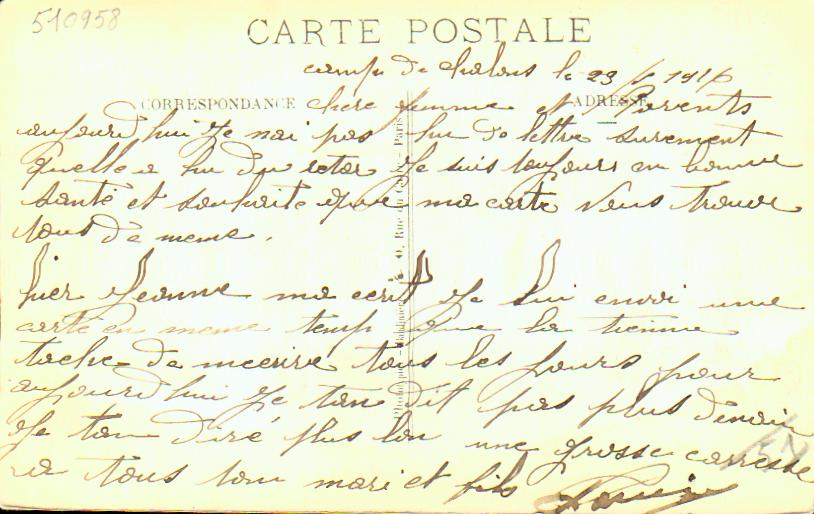 510958
CARTE POSTALE
camp de chalons le 23 / 1916
CORRESPONDANCE ADRESSE
chere femme et Parents
aujourd hui je nai pas hu de lettre surement
quelle a hu du retar je suis toujours en bonne
santé et souhaite que ma carte vous trouve
tous de meme.
hier Jeanne ma ecrit je lui envoi une
carte en meme temp que la tienne
tache de mecrire tous les jours pour
aujourdhui je tan dit pas plus
je tan diré plus lon une grosse caresse
a tous ton mari et fils